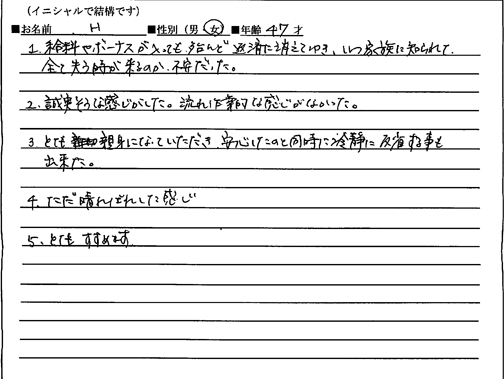 （イニシャルで結構です）
■お名前 H ■性別（男 女）■年齢 47 才
1. 給料やボーナスが入っても殆んど返済に消えてゆき、いつ家族に知られて、
全て失う時が来るのか不安だった。
2. 誠実そうな感じがした。流れ作業的な感じがなかった。
3. とても親身になっていただき 安心したのと同時に冷静に反省する事も
出来た。
4. ただ晴ればれした感じ
5. とても すすめます